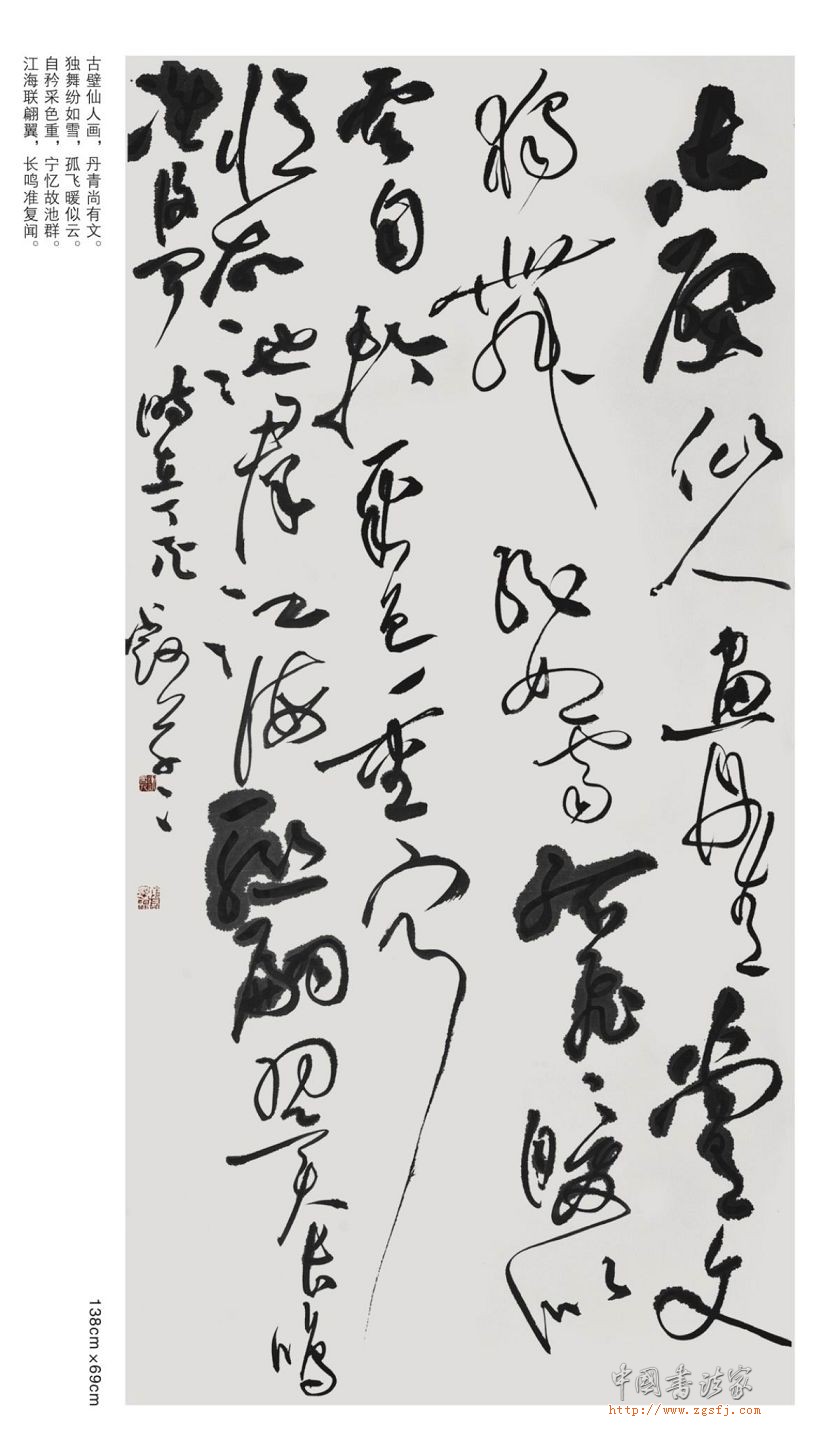 古壁仙人畫丹青尚有文
獨舞紛如雪孤飛暖似
雲自矜采色重寧
憶故池群江海聯翩翼長鳴
誰復聞 時在丁酉
古壁仙人画，丹青尚有文。
独舞纷如雪，孤飞暖似云。
自矜采色重，宁忆故池群。
江海联翩翼，长鸣准复闻。
138cm×69cm
中国书法家
http://www.zgsfj.com